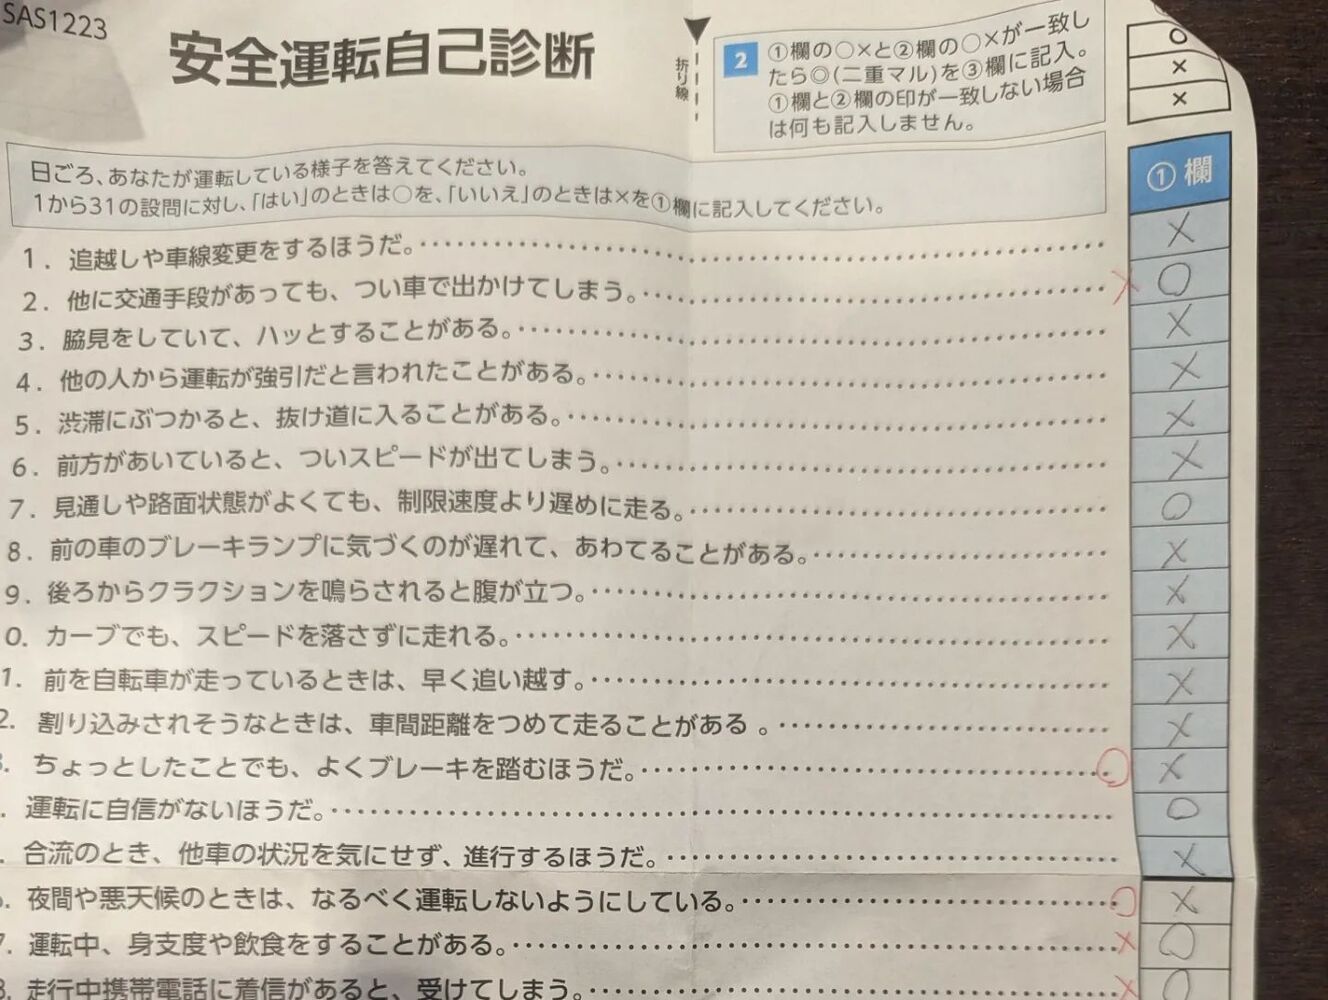 SAS1223
安全運転自己診断
折り線
2 ①欄の○×と②欄の○×が一致し
たら◎(二重マル)を③欄に記入。
①欄と②欄の印が一致しない場合
は何も記入しません。
○
×
×
日ごろ、あなたが運転している様子を答えてください。
1から31の設問に対し、「はい」のときは○を、「いいえ」のときは×を①欄に記入してください。
①欄
1. 追越しや車線変更をするほうだ。 ×
2. 他に交通手段があっても、つい車で出かけてしまう。 × ○
3. 脇見をしていて、ハッとすることがある。 ×
4. 他の人から運転が強引だと言われたことがある。 ×
5. 渋滞にぶつかると、抜け道に入ることがある。 ×
6. 前方があいていると、ついスピードが出てしまう。 ×
7. 見通しや路面状態がよくても、制限速度より遅めに走る。 ○
8. 前の車のブレーキランプに気づくのが遅れて、あわてることがある。 ×
9. 後ろからクラクションを鳴らされると腹が立つ。 ×
0. カーブでも、スピードを落さずに走れる。 ×
1. 前を自転車が走っているときは、早く追い越す。 ×
2. 割り込みされそうなときは、車間距離をつめて走ることがある 。 ×
3. ちょっとしたことでも、よくブレーキを踏むほうだ。 ○ ×
. 運転に自信がないほうだ。 ○
. 合流のとき、他車の状況を気にせず、進行するほうだ。 ×
. 夜間や悪天候のときは、なるべく運転しないようにしている。 ○ ×
7. 運転中、身支度や飲食をすることがある。 × ○
8. 走行中携帯電話に着信があると、受けてしまう。 × ○